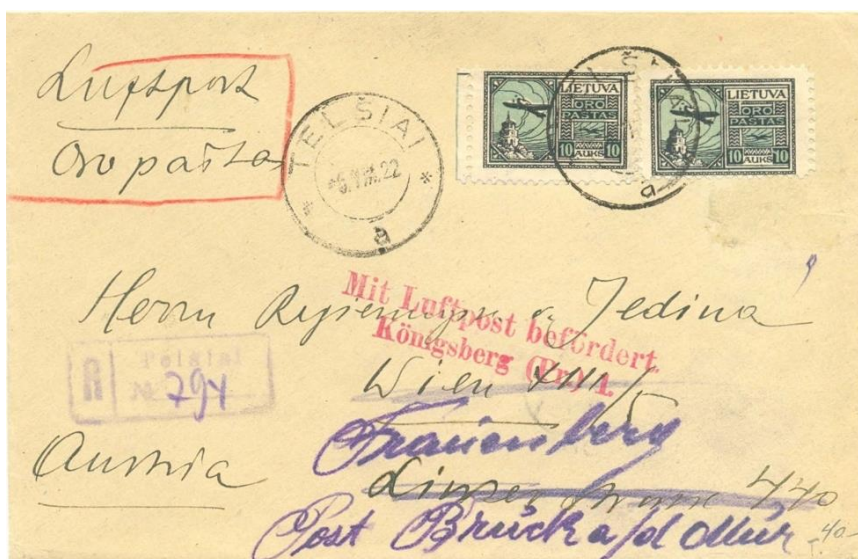 Luftpost
Oro paštas
TELŠIAI
VIII.22
a
LIETUVA
ORO
PAŠTAS
10 AUKS 10
LIETUVA
ORO
PAŠTAS
10 AUKS 10
Mit Luftpost befördert
Königsberg (Pr.) 1.
Herrn Jedina
Wien XIII/
R Telšiai
№ 794
Frauenberg
Austria
Linzer 440
Post Bruck a/d Mur
40-